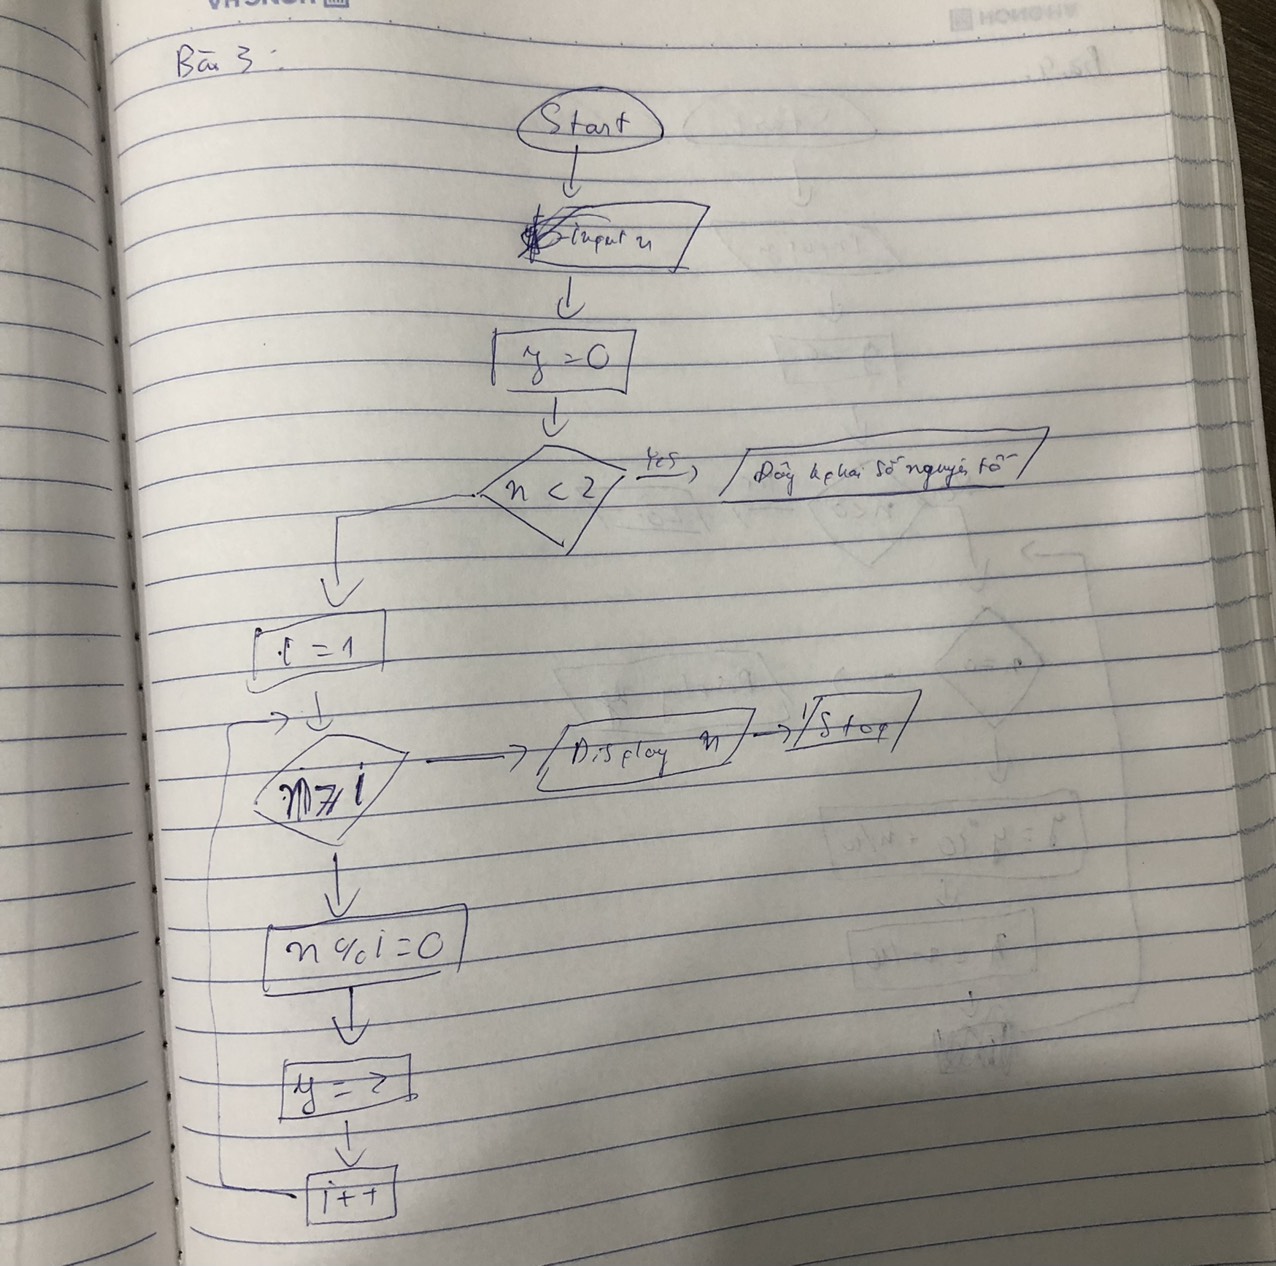 Bài 3:
Start
input n
y = 0
n < 2
Yes
Đây k phải số nguyên tố
i = 1
n ⩾ i
Display n
Stop
n % i = 0
y = 2
i++